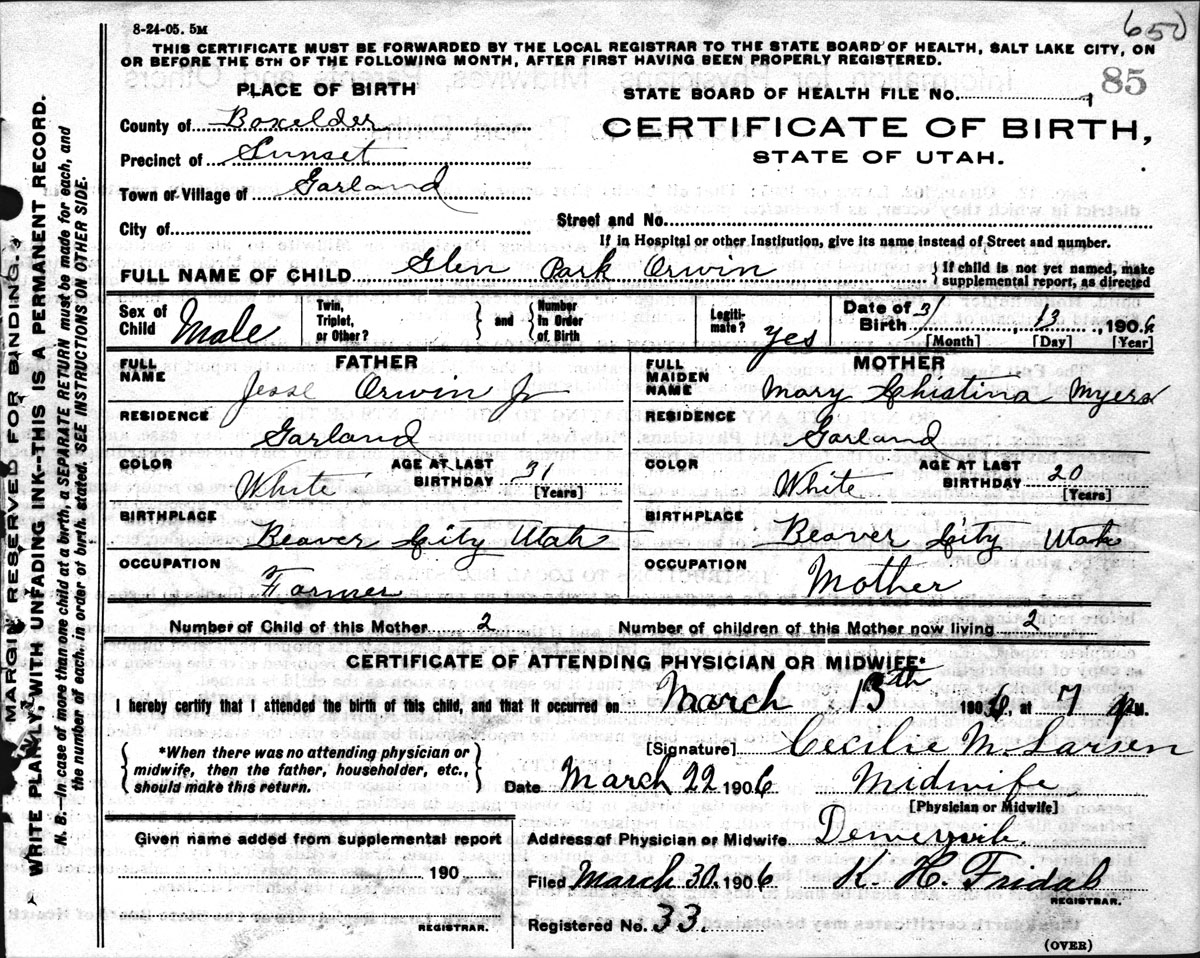 650
8-24-05. 5M
THIS CERTIFICATE MUST BE FORWARDED BY THE LOCAL REGISTRAR TO THE STATE BOARD OF HEALTH, SALT LAKE CITY, ON
OR BEFORE THE 5TH OF THE FOLLOWING MONTH, AFTER FIRST HAVING BEEN PROPERLY REGISTERED.
85
PLACE OF BIRTH
STATE BOARD OF HEALTH FILE NO.
County of Boxelder
CERTIFICATE OF BIRTH,
Precinct of Sunset
STATE OF UTAH.
Town or Village of Garland
City of
Street and No.
If in Hospital or other Institution, give its name instead of Street and number.
FULL NAME OF CHILD Glen Park Orwin
If child is not yet named, make
supplemental report, as directed
Sex of Child Male
Twin, Triplet, or Other?
and
Number in Order of Birth
Legiti- mate? Yes
Date of Birth 3/ 13, 1906
[Month] [Day] [Year]
FATHER
FULL NAME Jesse Orwin Jr
MOTHER
FULL MAIDEN NAME Mary Christina Myers
RESIDENCE Garland
RESIDENCE Garland
COLOR White
AGE AT LAST BIRTHDAY 31
[Years]
COLOR White
AGE AT LAST BIRTHDAY 20
[Years]
BIRTHPLACE Beaver City Utah
BIRTHPLACE Beaver City Utah
OCCUPATION Farmer
OCCUPATION Mother
Number of Child of this Mother 2
Number of children of this Mother now living 2
CERTIFICATE OF ATTENDING PHYSICIAN OR MIDWIFE*
I hereby certify that I attended the birth of this child, and that it occurred on March 13th 1906, at 7 P.M.
*When there was no attending physician or
midwife, then the father, householder, etc.,
should make this return.
[Signature] Cecilie M Larsen
Date March 22 1906
Midwife
[Physician or Midwife]
Given name added from supplemental report
190
REGISTRAR.
Address of Physician or Midwife
Filed March 30. 1906
K. H. Fridal
REGISTRAR.
Registered No. 33.
(OVER)
MARGIN RESERVED FOR BINDING.
WRITE PLAINLY, WITH UNFADING INK—THIS IS A PERMANENT RECORD.
N. B.—In case of more than one child at a birth, a SEPARATE RETURN must be made for each, and
the number of each, in order of birth, stated. SEE INSTRUCTIONS ON OTHER SIDE.